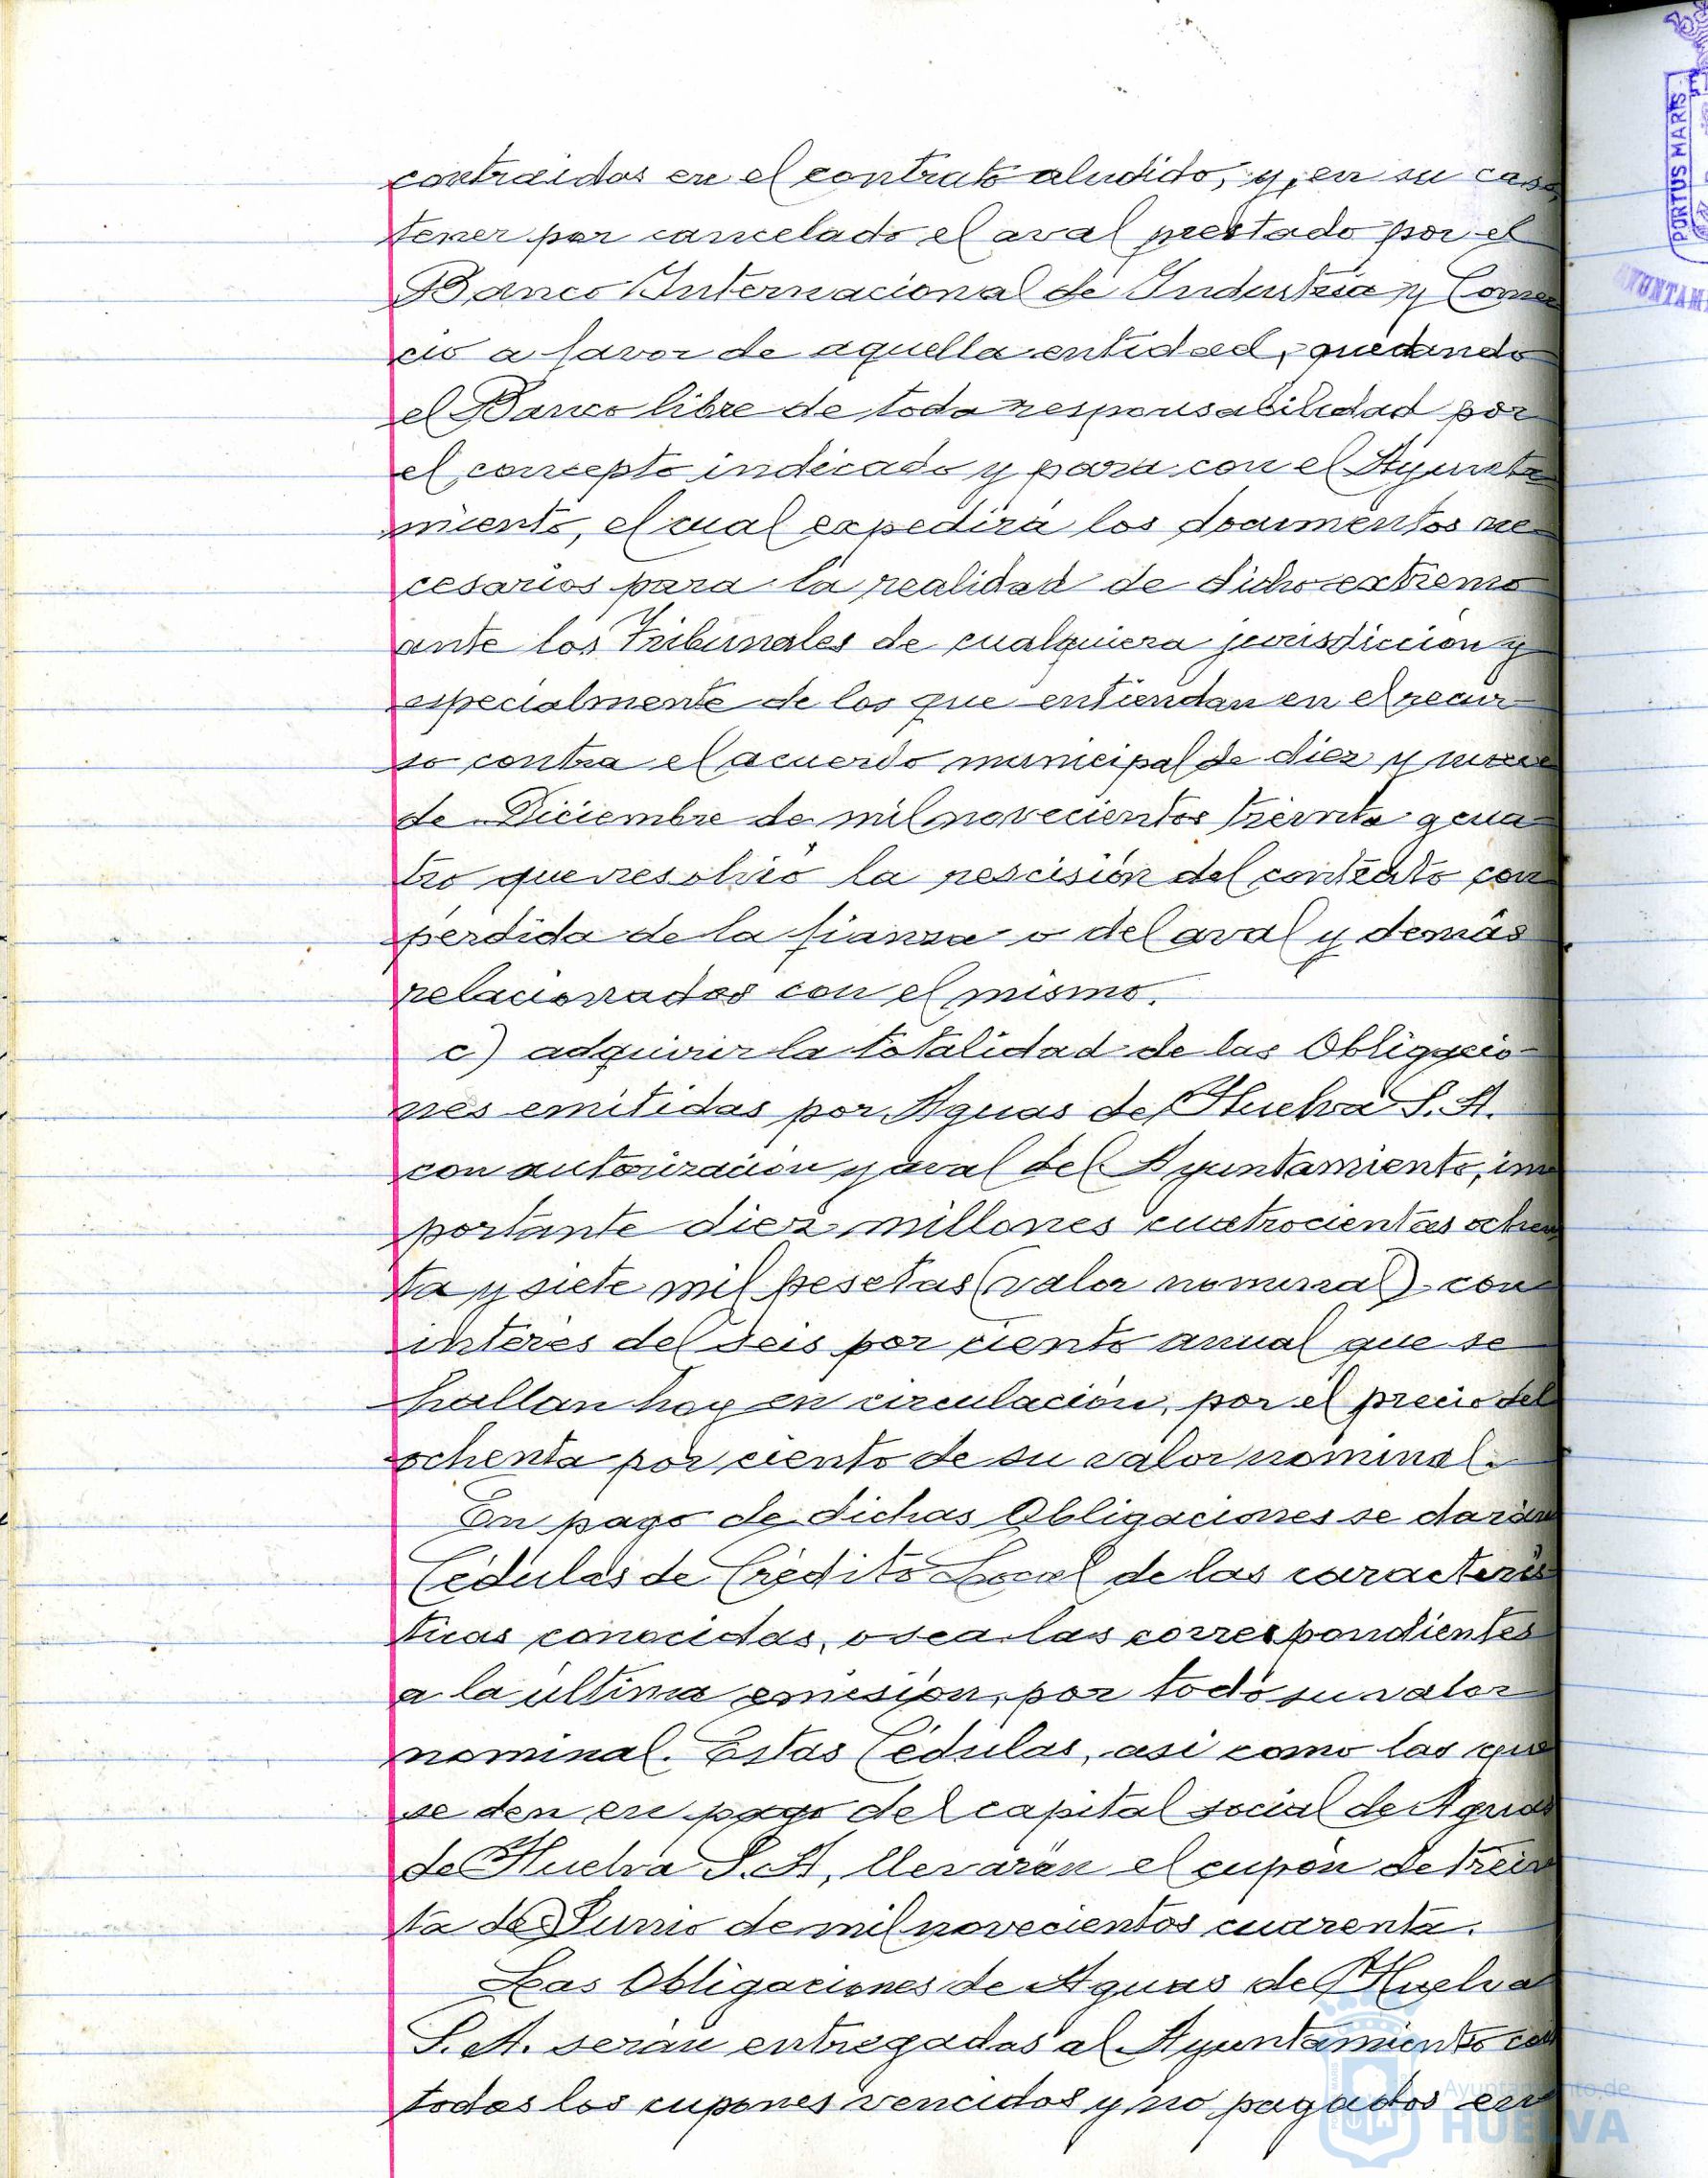 contraidos en el contrato aludido, y, en su caso,
tener por cancelado el aval prestado por el
Banco Internacional de Industria y Comer
cio a favor de aquella entidad, quedando
el Banco libre de toda responsabilidad por
el concepto indicado y para con el Ayunta
miento, el cual expedirá los documentos ne
cesarios para la realidad de dicho extremo
ante los Tribunales de cualquiera jurisdiccion y
especialmente de los que entiendan en el recur-
so contra el acuerdo municipal de diez y nueve
de Diciembre de mil novecientos treinta y cua
tro que resolvió la rescisión del contrato con
pérdida de la fianza o del aval y demás
relacionados con el mismo.
c) adquirir la totalidad de las Obligacio-
nes emitidas por Aguas de Huelva S. A.
con autorización y aval del Ayuntamiento, im
portante diez millones cuatrocientas ochen
ta y siete mil pesetas (valor nominal) con
interés del seis por ciento anual que se
hallan hoy en circulación, por el precio del
ochenta por ciento de su valor nominal.
En pago de dichas Obligaciones se darán
Cédulas de Crédito Local de las caracterís
ticas conocidas, o sea las correspondientes
a la última emisión, por todo su valor
nominal. Estas Cédulas, asi como las que
se den en pago del capital social de Aguas
de Huelva S. A, llevarán el cupón de trein
ta de Junio de mil novecientos cuarenta.
Las Obligaciones de Aguas de Huelva
S. A. serán entregadas al Ayuntamiento con
todos los cupones vencidos y no pagados en
PORTUS MARIS
Ayuntamiento de
HUELVA